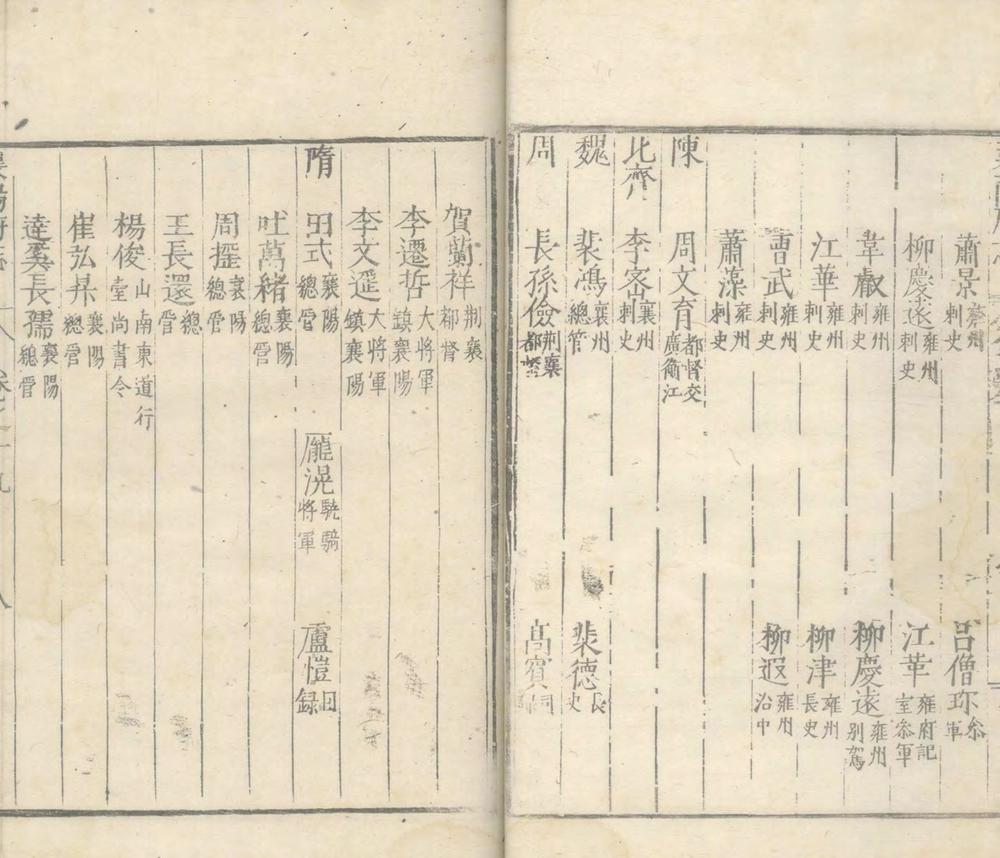 蕭景 雍州刺史 呂僧珍 參軍
柳慶遠 雍州刺史 江革 雍府記室參軍
韋叡 雍州刺史 柳慶遠 雍州別駕
江華 雍州刺史 柳津 雍州長史
曹武 雍州刺史 柳遐 雍州治中
蕭藻 雍州刺史
陳 周文育 都督交廣衡江
北齊 李宻 襄州刺史
魏 裴鴻 襄州總管 裴德 長史
周 長孫儉 荆襄都督 高賓
賀蘭祥 荆襄都督
李遷哲 大將軍鎮襄陽
李文遥 大將軍鎮襄陽
吐萬緒 襄陽總管
隋 田式 襄陽總管 龐滉 驍騎將軍 盧愷 田録
周揺 襄陽總管
王長還 總管
楊俊 山南東道行臺尚書令
崔弘昇 襄陽總管
達奚長孺 襄陽總管
襄陽府志 卷之十九 八